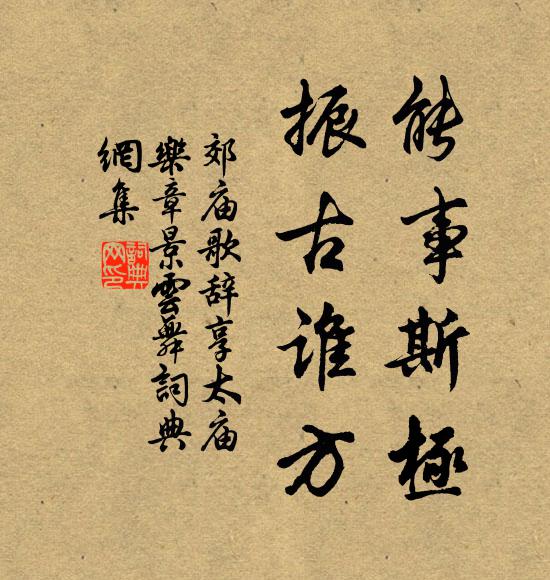 能事斯極
振古谁方
郊庙歌辞享太庙
樂章景雲舞詞典
網集
詞典網印